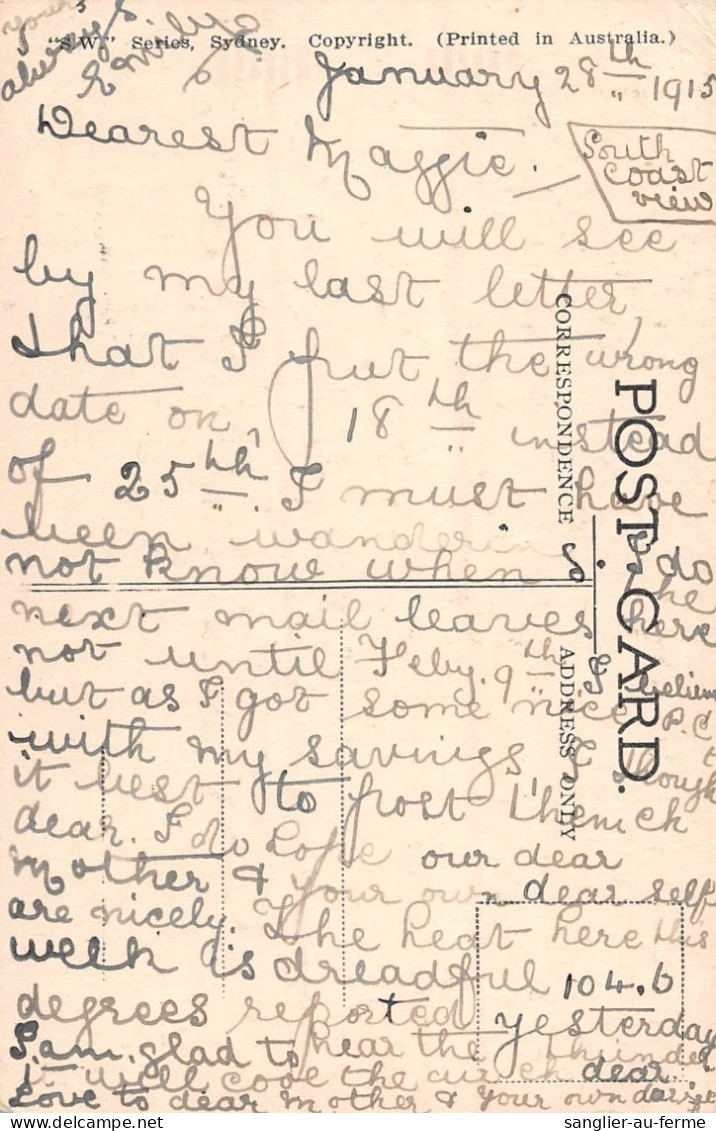 yours
always
Emily
"S.W." Series, Sydney. Copyright. (Printed in Australia.)
January 28th 1915
Dearest Maggie.
South
Coast
view
You will see
by my last letter,
that I put the wrong
date on, 18th instead
of 25th. I must have
been wandering I do
not know when the
next mail leaves here
not until Feby. 9th I believe
but as I got some nice P.C.
with my savings, I thought
it best to post them
dear. I do hope our dear
Mother & your own dear self
are nicely. The heat here this
week is dreadful 104.6
degrees reported yesterday
I am glad to hear the thunder
it will cool the air dear
Love to dear Mother & your own
POST CARD.
CORRESPONDENCE
ADDRESS ONLY
sanglier-au-ferme.com